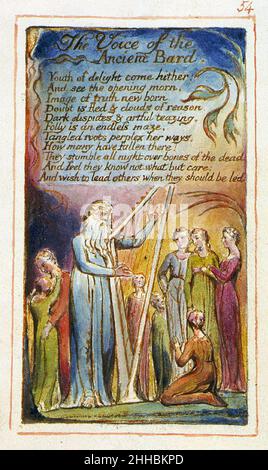 54
The Voice of the
Ancient Bard.
Youth of delight come hither:
And see the opening morn,
Image of truth new born
Doubt is fled & clouds of reason
Dark disputes & artful teazing.
Folly is an endless maze,
Tangled roots perplex her ways,
How many have fallen there!
They stumble all night over bones of the dead
And feel they know not what but care
And wish to lead others when they should be led
alamy
Image ID: 2HHBKPD
www.alamy.com